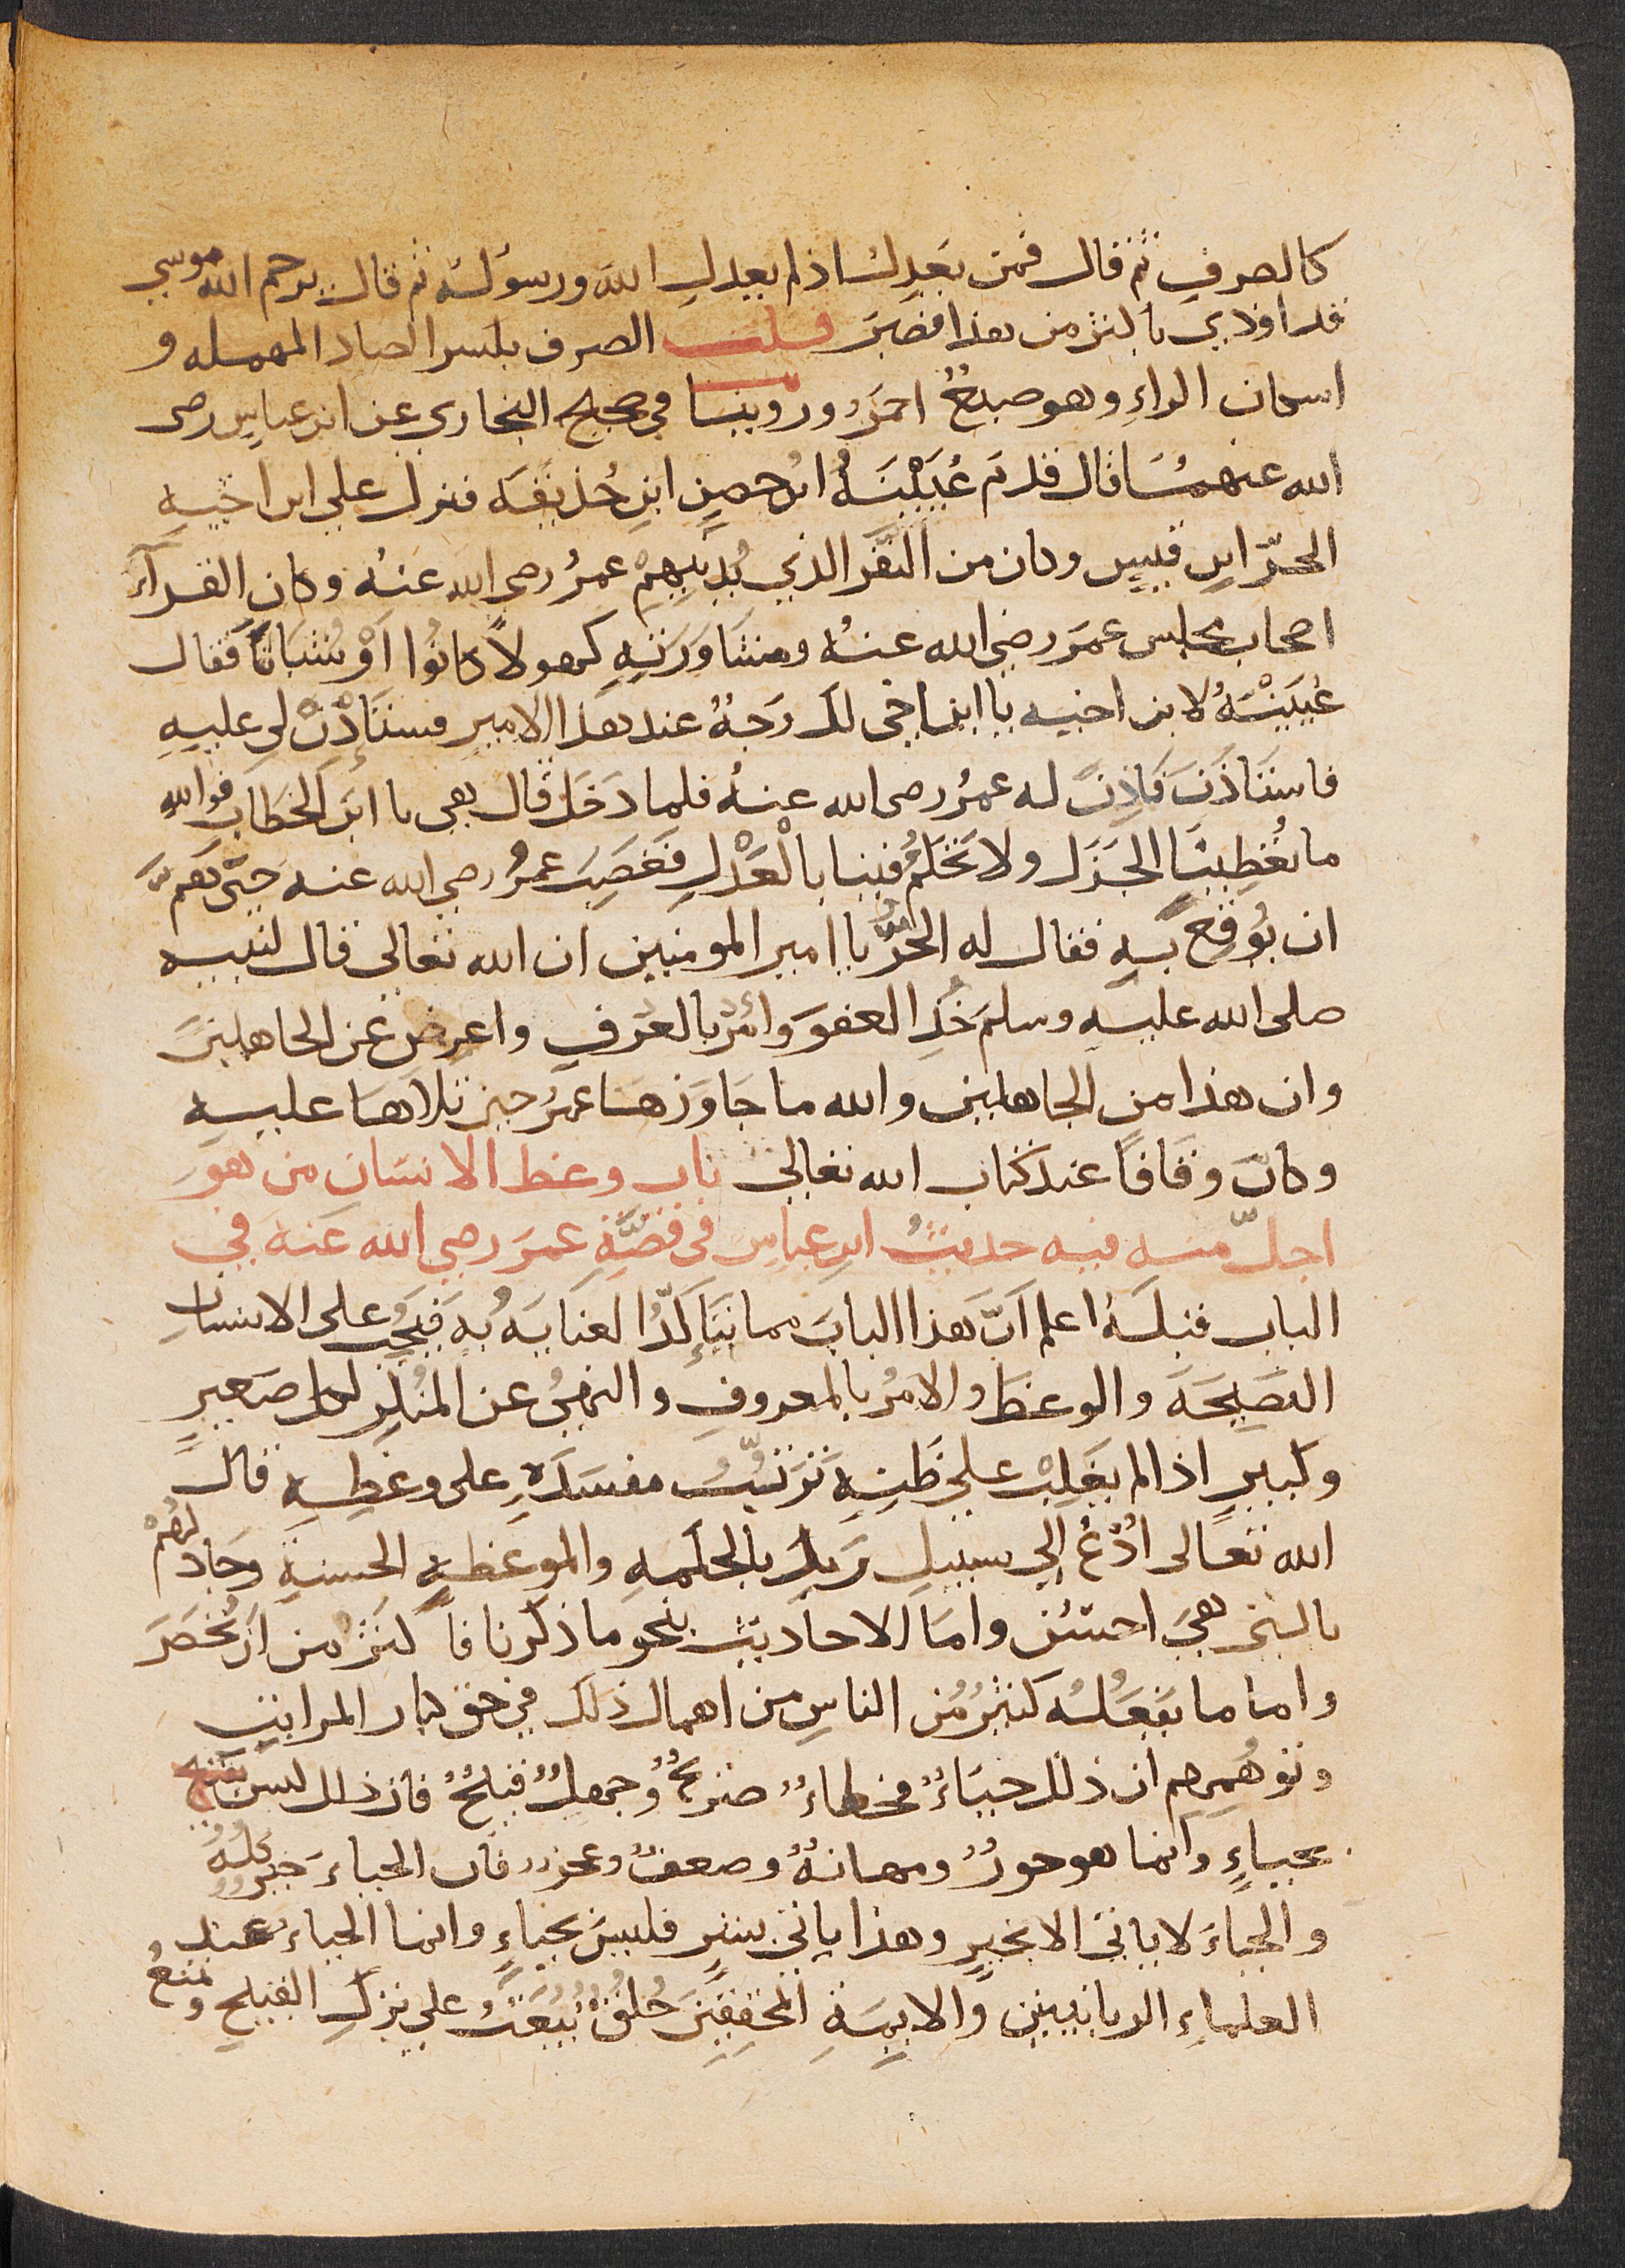 كالصرف ثم قال فمن يعدل اذا لم يعدل الله ورسوله ثم قال يرحم الله موسي
قد اوذي باكثر من هذا فصبر قلت الصرف بكسر الصاد المهمله و
اسكان الراءِ وهو صبغٌ احمَر وروينا في صحيح البخاري عن ابن عباسٍ رضى
الله عنهمَا قال قدم عُيَيْنَهُ ابن حصنٍ ابنِ حُذيفَه فنزل علي ابن اخيهِ
الحرّ ابنِ قيسٍ وكان من النَّفَر الذي يُدنيهِمْ عمرُ رضى الله عنهُ وكان القرآءُ
اصحاب مجلس عمرَ رضي الله عنهُ ومشَاوَرَتِهِ كهولاً كانُوا اَوْ شُبَّاناً فقال
عُيَيْنَهُ لابن اخيه يا ابن اخي لك وَجهٌ عند هذا الامير فستَأذِنْ لي عليهِ
فاستَاذَنَ فاذِنَ له عمرُ رضى الله عنهُ فلما دَخَلَ قال هى يا ابنَ الخطاب فوالله
ما تُعْطِينَا الجَزْلَ ولا تَحْكمُ فينا بالْعَدْلِ فَغضِبَ عمرُ رضي الله عنه حتّى هَمَّ
ان يُوقِعَ بهِ فقال له الحُرُّ يا امير المومنين ان الله تعالى قال لنبيه
صلى الله عليه وسلم خُذِ العفوَ وَأمُرْ بالعُرفِ واعرِض عن الجاهلينَ
وان هذا من الجاهلين والله ما جَاوَزهَا عمرُ حين تلاهَا عليهِ
وكان وقافًا عند كتاب الله تعالى باب وعظ الانسَان من هوَ
اجلّ منه فيه حديثُ ابنِ عباس في قصَّةِ عمرَ رضي الله عنه في
الباب قبلَهُ اعلم اَنَّ هذا البابَ مما يتَأكّدُ العنايَهُ به فيَجبُ على الانسانِ
النصَيحَه والوعظ والامرُ بالمعروفِ والنهيُ عن المُنكَرِ لكل صغيرٍ
وكبيرٍ اذا لم يغلِبْ على ظَنِهِ تَرتُّبُ مفسَدَهٍ على وعظِهِ قال
الله تعالى ادْعُ الي سبيلِ رَبِكَ بالحكمهِ والموعظهِ الحسنهِ وجَادلهُمْ
بالتي هيَ احسَنُ وامَا الاحاديث بنحو ما ذكرنا فاكثر من ان تُحْصَرَ
واما ما يفعَلُه كثيرٌ مُن الناسِ من اهمال ذلك في حق كبار المراتبِ
وتوهُمهم ان ذلك حيَاءٌ فخطاءٌ صَريحٌ وجهلٌ قبيحٌ فان ذلك ليس
بحياءٍ وانما هو خورٌ ومهانهٌ وضعفٌ وعجز فان الحياءَ خيرٌ كلُهُ
والحياءَ لا ياتى الا بخيرٍ وهذا ياتي بشرٍ فليسَ بحياءٍ وانما الحياء عند
العلماءِ الربانيين والايمَهِ المحققينَ خُلقٌ يَبعَثُ على تركِ القبيح ويمنعُ